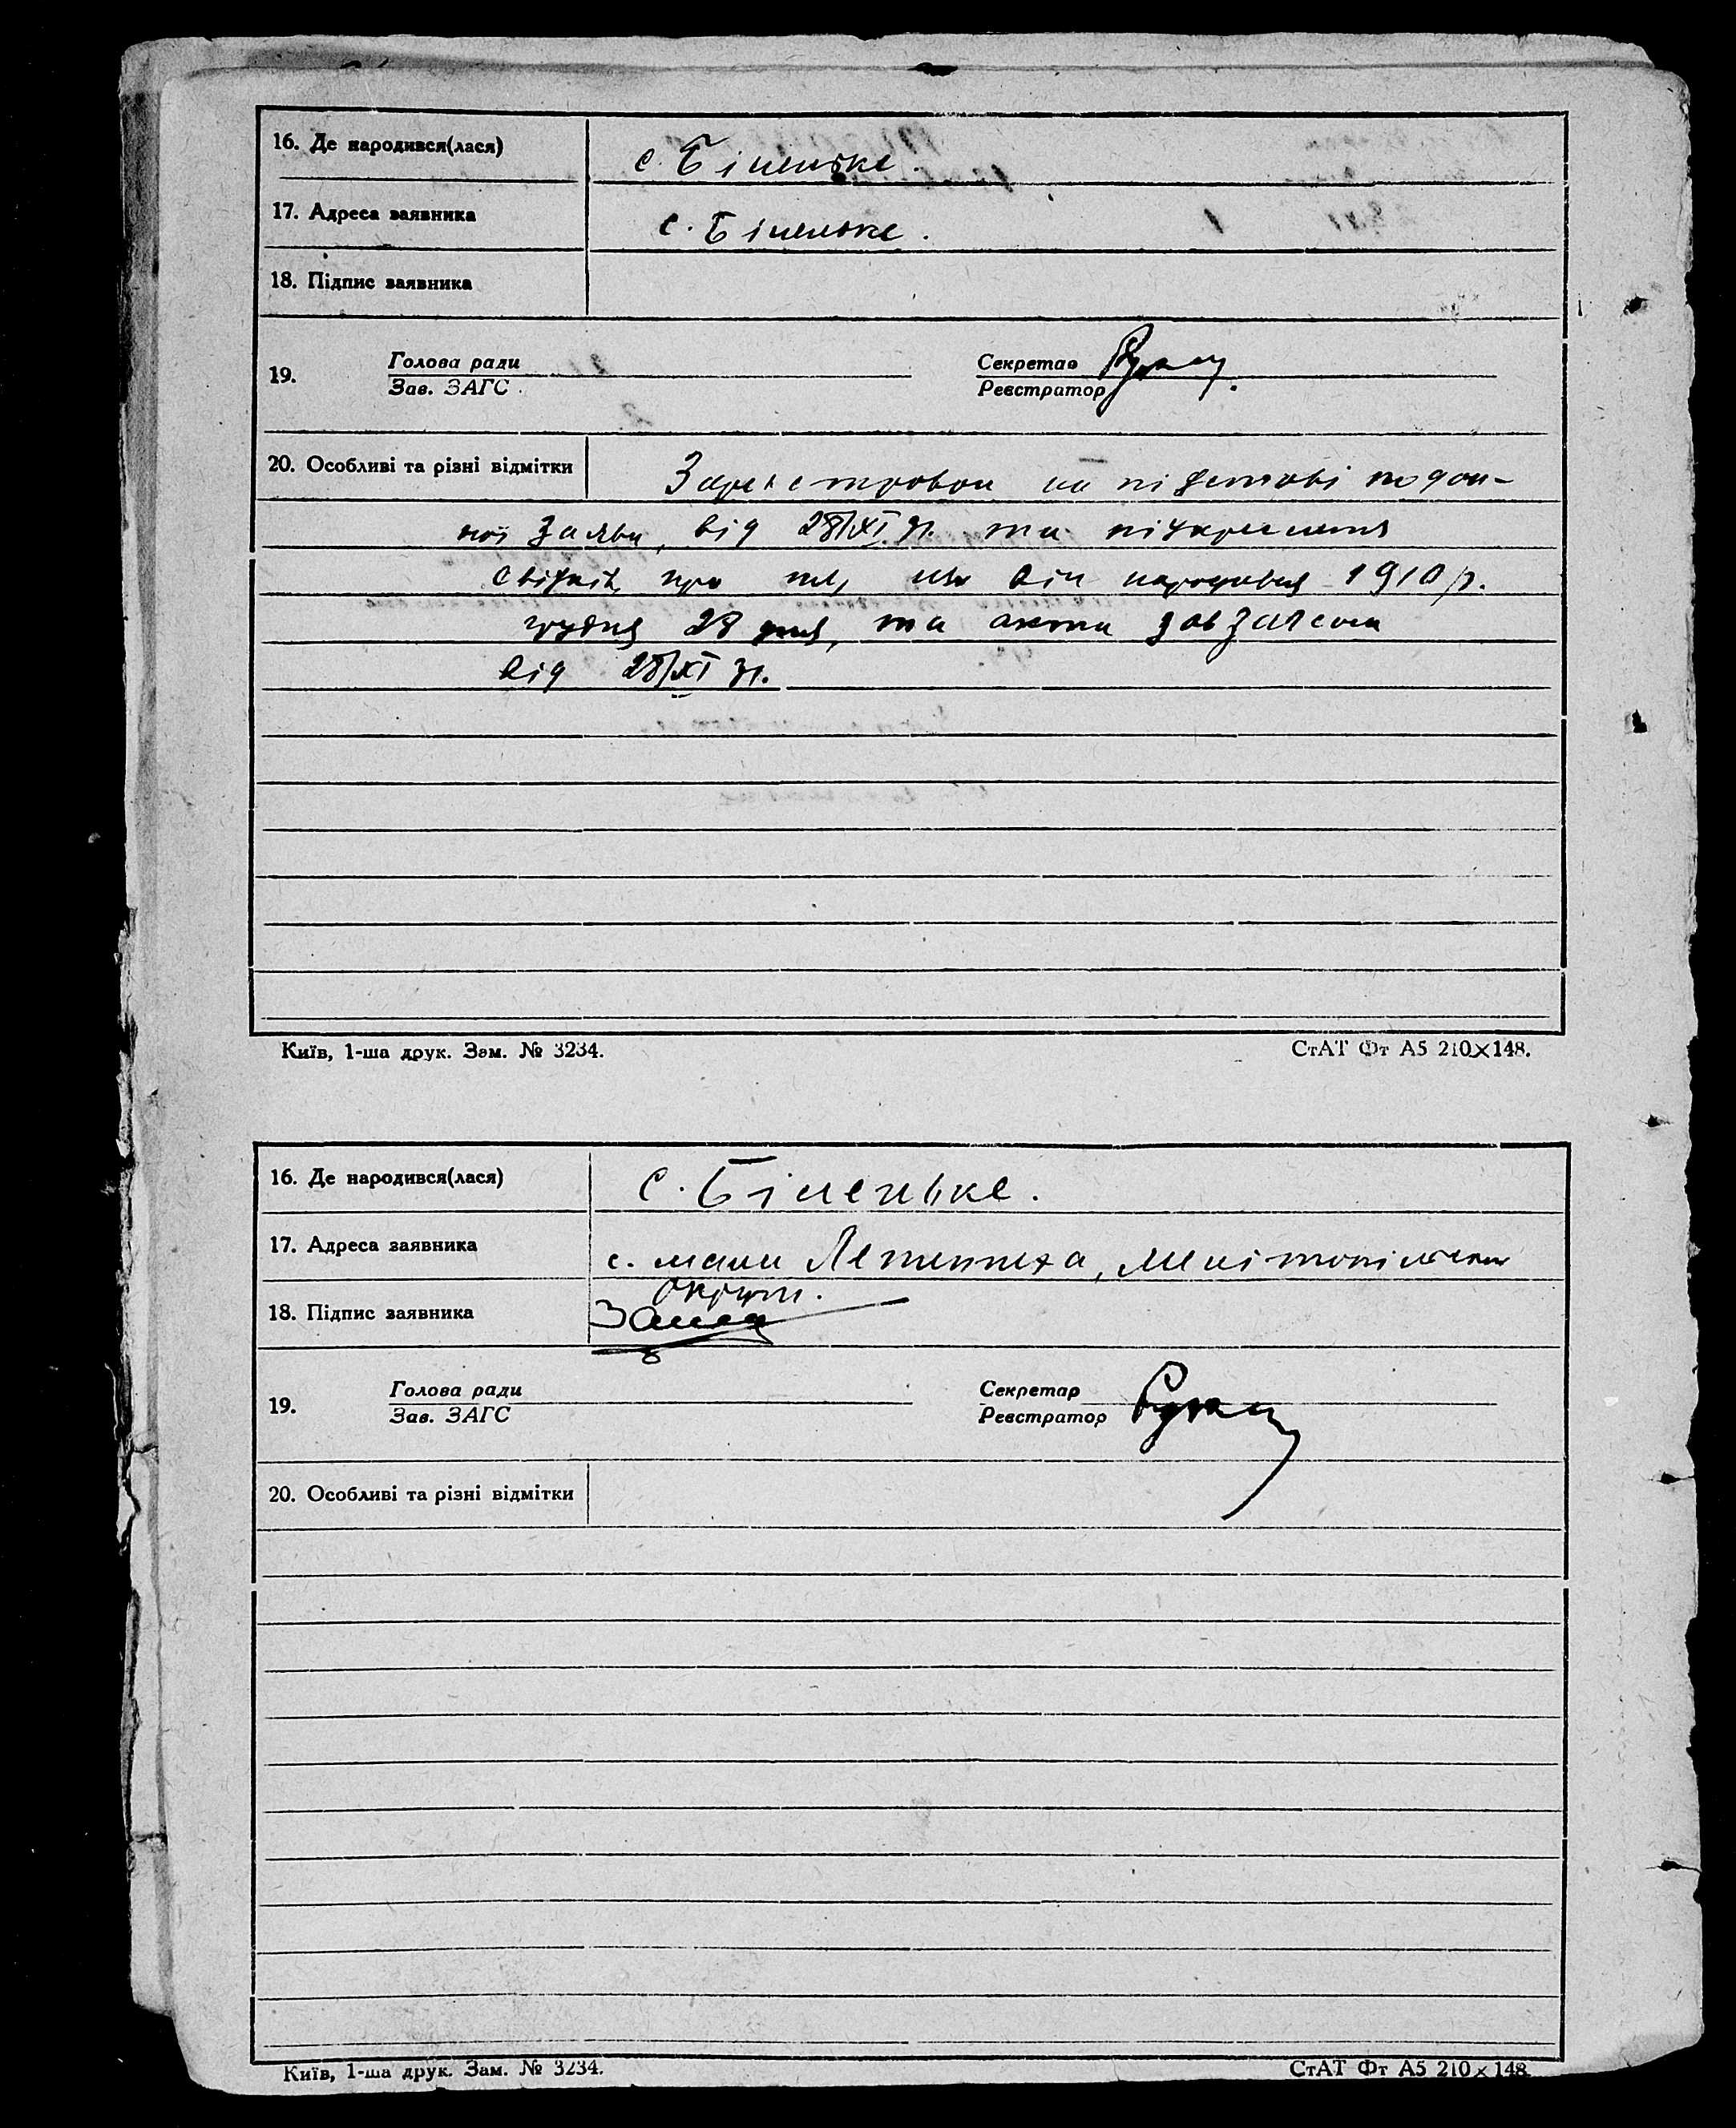 16. Де народився(лася) с. Біленьке.
17. Адреса заявника с. Біленьке.
18. Підпис заявника
19. Голова ради Секретар
Зав. ЗАГС Реєстратор
20. Особливі та різні відмітки Зареєстрован на підставі подан-
ної заяви, від 28/XI 31. та підкреслення
свідків про те, що він народився 1910 р.
грудня 28 дня, та акта завзагсом
від 28/XI 31.
Київ, 1-ша друк. Зам. № 3234. СтАТ Фт А5 210×148.
16. Де народився(лася) С. Біленьке.
17. Адреса заявника с. мала Лепетиха, Мелітопільськ
округи.
18. Підпис заявника
19. Голова ради Секретар
Зав. ЗАГС Реєстратор
20. Особливі та різні відмітки
Київ, 1-ша друк. Зам. № 3234. СтАТ Фт А5 210×148.